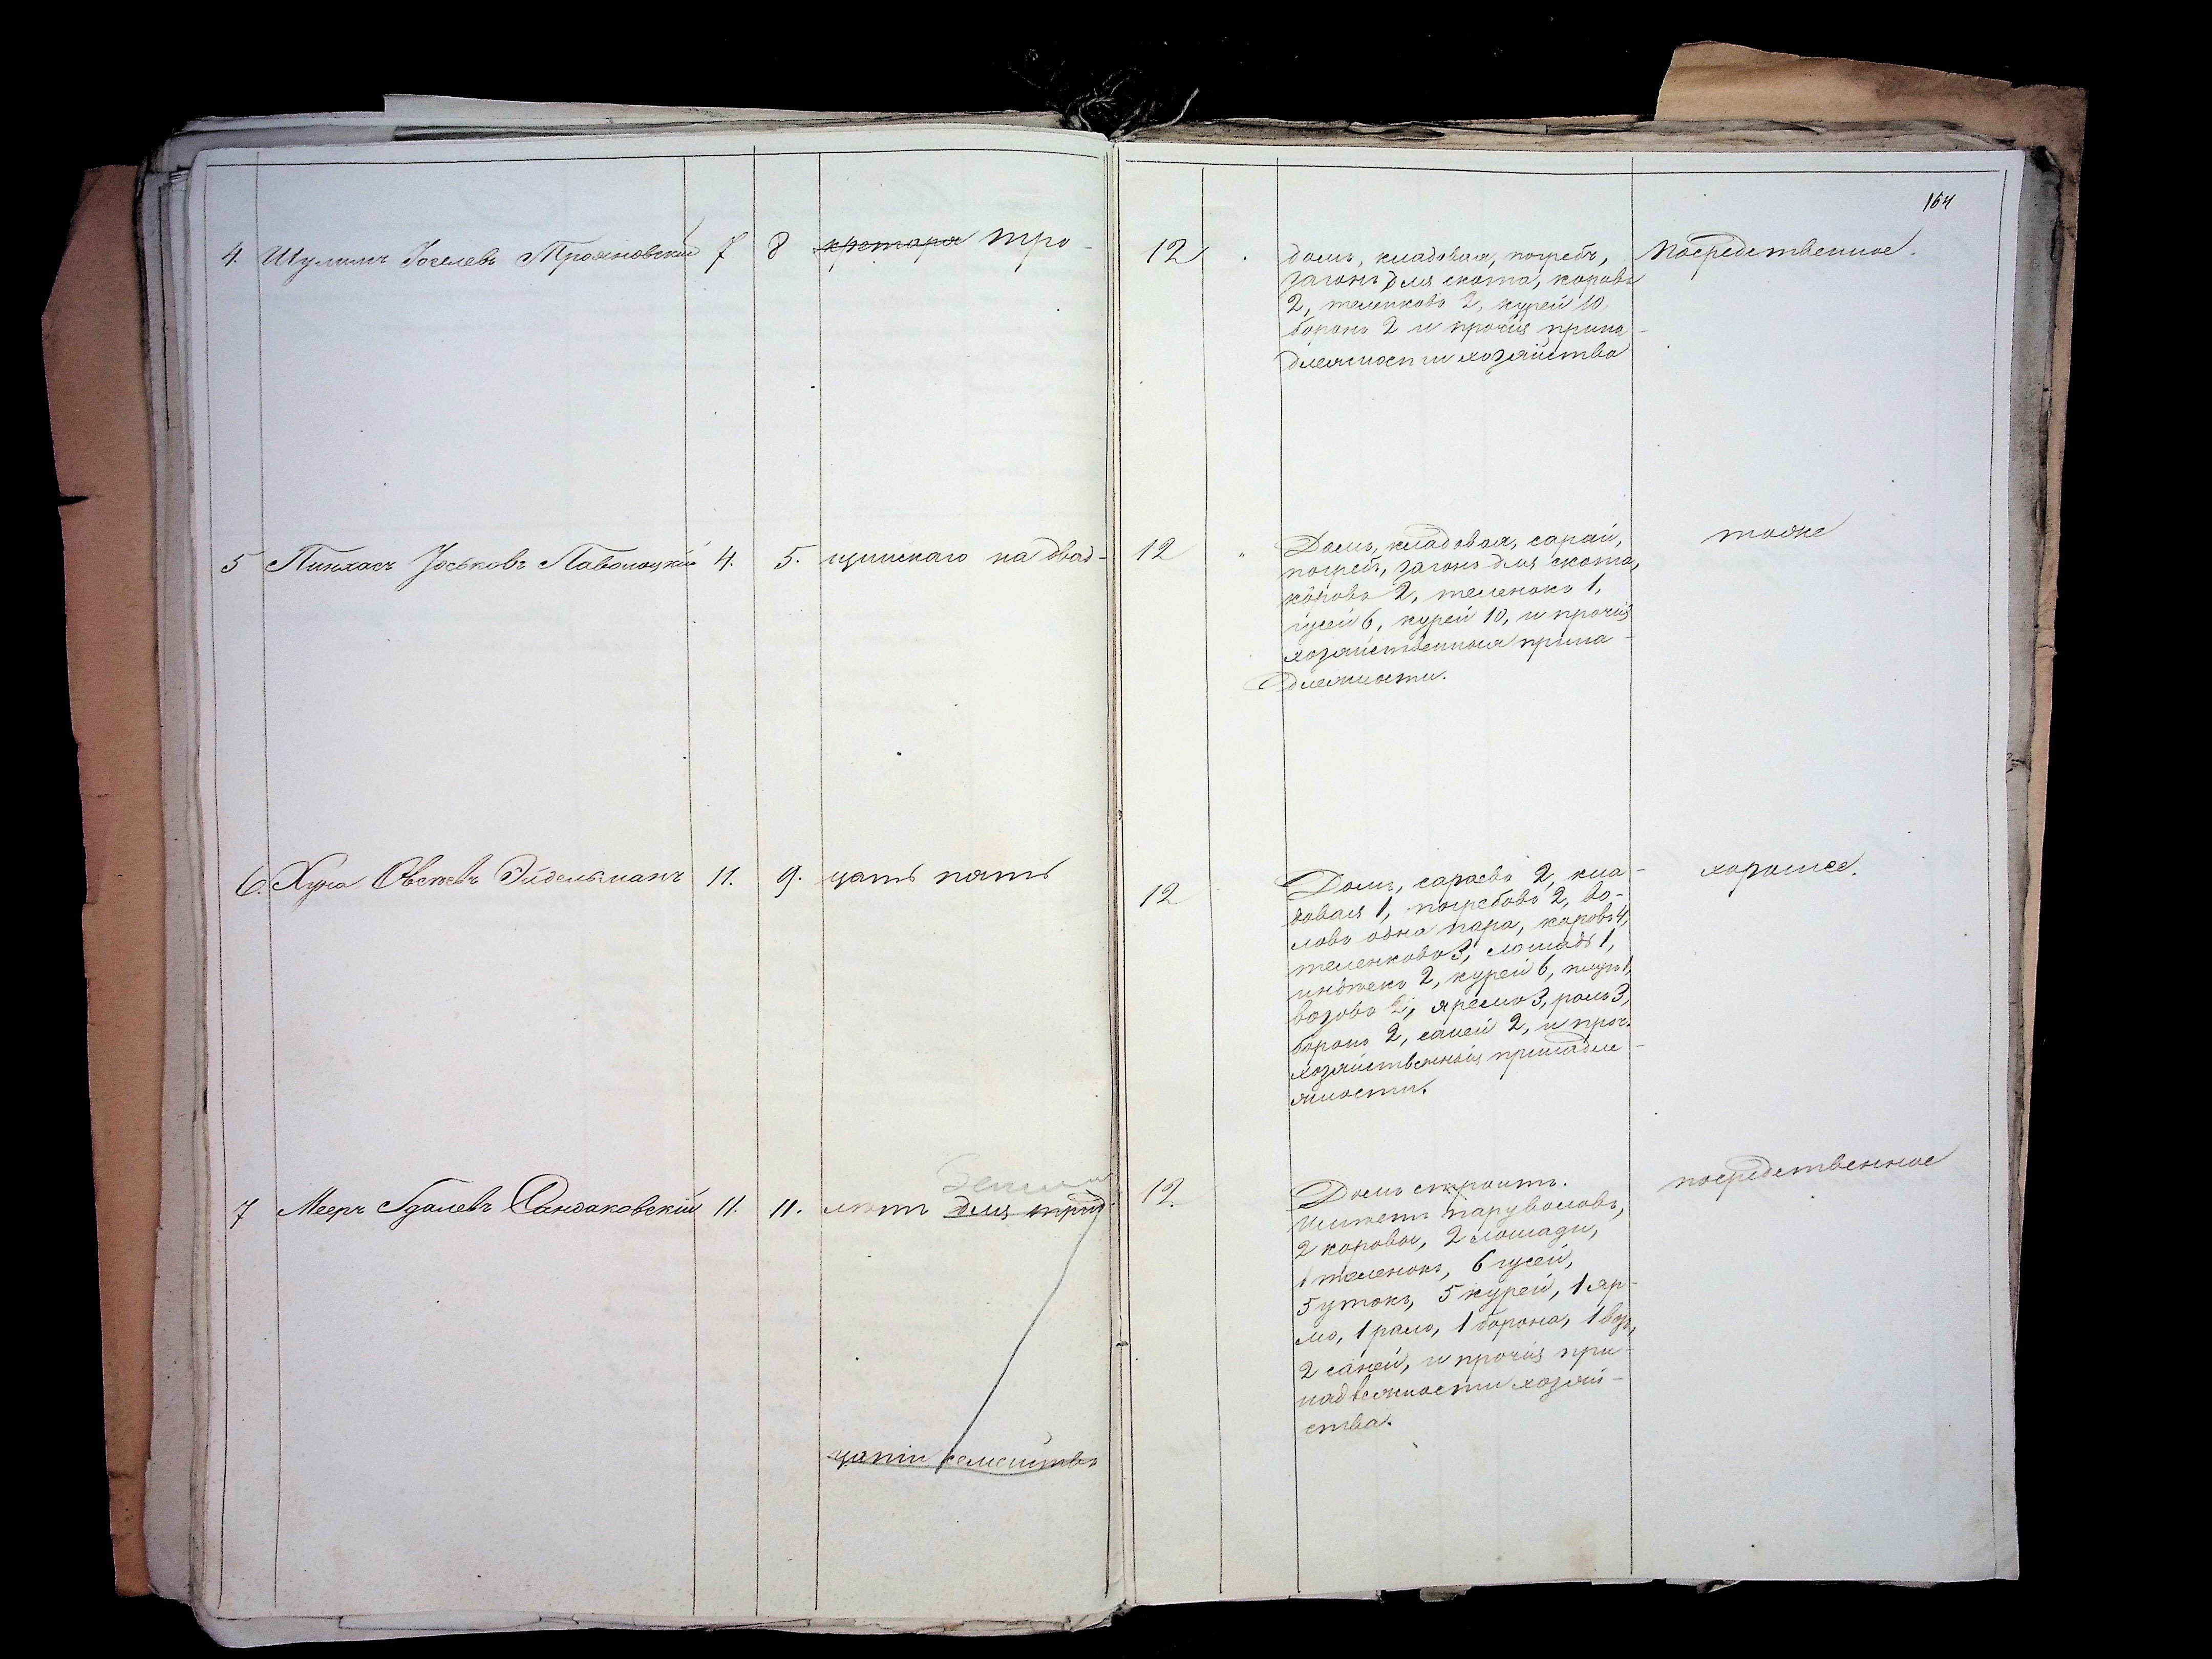 164
4. Шулимъ Іоселевъ Трояновскій 7 8 кретаря тро- 12 домъ, кладовая, погребъ, Посредственное.
загонъ для скота, коровъ
2, теленковъ 2, курей 10,
боронъ 2 и прочія прина-
длежности хозяйства
5 Пинхасъ Іоськовъ Паволоцкій 4. 5. щинскаго на двад- 12 " Домъ, кладовая, сарай, тоже
погребъ, загонъ для скота,
коровъ 2, теленокъ 1,
гусей 6, курей 10, и прочія
хозяйственныя прина-
длежности.
6. Хуна Овсеевъ Эйдельманъ 11. 9. цать пять 12 Домъ, сараевъ 2, кла- хорошее.
довая 1, погребовъ 2, во-
ловъ одна пара, коровъ 4,
теленковъ 3, лошадь 1,
индеекъ 2, курей 6, плугъ 1,
возовъ 2, яремъ 3, ралъ 3,
боронъ 2, саней 2, и проч.
хозяйственныя принадле-
жности.
земли
7 Мееръ Гдалевъ Сандаковскій 11. 11. летъ для трид- 12. Домъ строитъ. посредственное
Имеетъ пару воловъ,
2 коровы, 2 лошади,
1 теленокъ, 6 гусей,
5 утокъ, 5 курей, 1 яр-
мо, 1 рало, 1 борона, 1 возъ,
2 саней, и прочія при-
надлежности хозяй-
ства.
цати семействъ